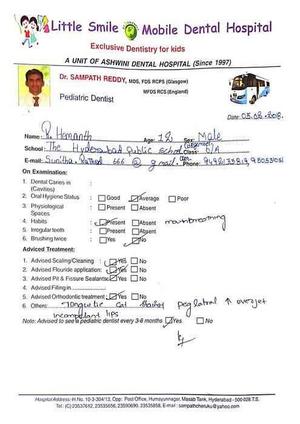 Little Smile Mobile Dental Hospital
Exclusive Dentistry for kids
A UNIT OF ASHWINI DENTAL HOSPITAL (Since 1997)
Dr. SAMPATH REDDY, MDS, FDS RCPS (Glasgow)
MFDS RCS (England)
Pediatric Dentist
Date: 05.02.2018.
Name: R. Hemanth Age: 12 Sex: Male
School: The Hyderabad Public School Class: 6/A
E-mail: Sunitha. 666 @ gmail. Phone:
On Examination:
1. Dental Caries in (Cavities)
2. Oral Hygiene Status Good Average Poor
3. Physiological Spaces Present Absent
4. Habits Present Absent mouthbreathing
5. Irregular teeth Present Absent
6. Brushing twice Yes No
Adviced Treatment:
1. Advised Scaling/Cleaning : Yes No
2. Advised Flouride application: Yes No
3. Advised Pit & Fissure Sealants: Yes No
4. Advised Filling in
5. Advised Orthodontic treatment : Yes No
6. Others: peg lateral ↑ overjet
incompetent lips
Note: Advised to see a pediatric dentist every 3-6 months Yes No
Hospital Address: H.No. 10-3-304/13, Opp: Post Office, Humayunnagar, Masab Tank, Hyderabad - 500 028 T.S.
Tel: (C) 23537692, 23535656, 23590690, 23535858, E-mail: sampathcheruku@yahoo.com